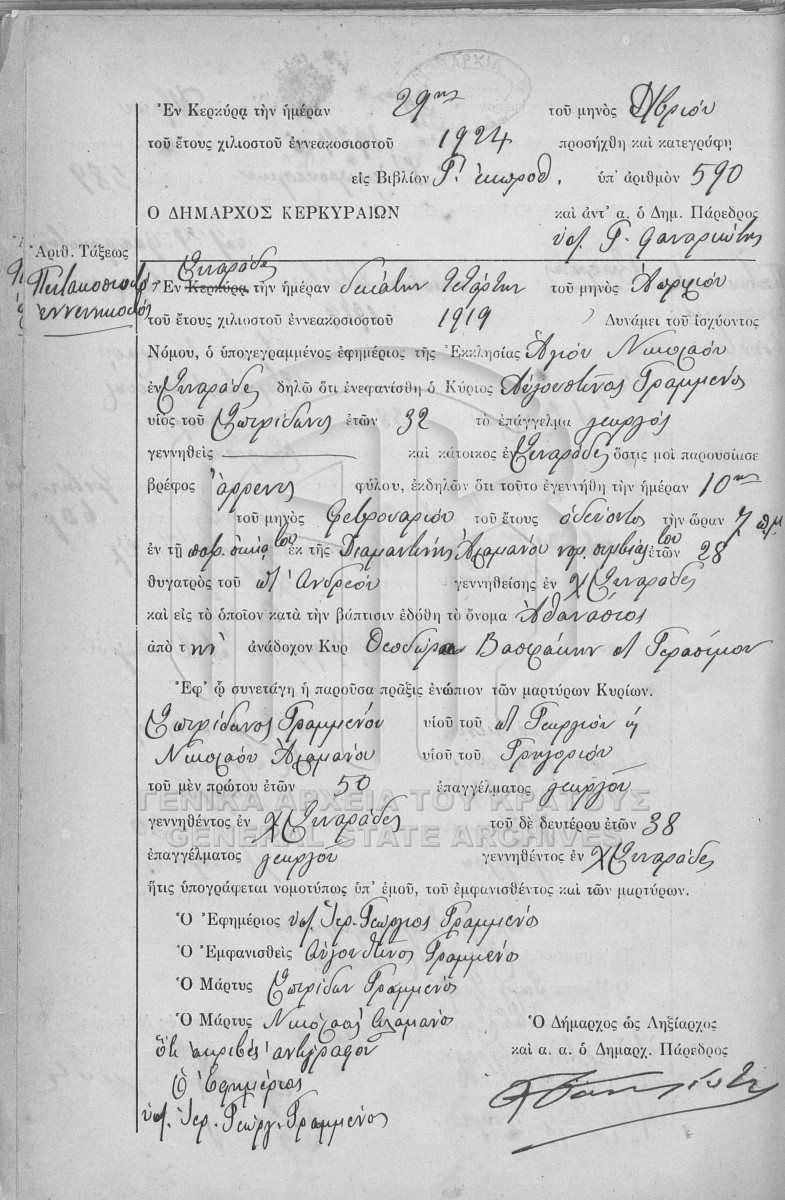 Ἐν Κερκύρᾳ τὴν ἡμέραν 29ην τοῦ μηνὸς 
τοῦ ἔτους χιλιοστοῦ ἐννεακοσιοστοῦ 1924 προσήχθη καὶ κατεγράφη
εἰς Βιβλίον Γ. ἐκπροθ. ὑπ' ἀριθμὸν 590
Ο ΔΗΜΑΡΧΟΣ ΚΕΡΚΥΡΑΙΩΝ καὶ ἀντ' α. ὁ Δημ. Πάρεδρος
ὑπ. Γ. Φαναριώτης
Ἀριθ. Τάξεως
Πεντακοσιοστὸς
ἐννενηκοστός
Συναράδες
Ἐν Κερκύρᾳ τὴν ἡμέραν δεκάτην τετάρτην τοῦ μηνὸς Ἀπριλίου
τοῦ ἔτους χιλιοστοῦ ἐννεακοσιοστοῦ 1919 Δυνάμει τοῦ ἰσχύοντος
Νόμου, ὁ ὑπογεγραμμένος ἐφημέριος τῆς Ἐκκλησίας Ἁγίου Νικολάου
ἐν Συναράδες δηλῶ ὅτι ἐνεφανίσθη ὁ Κύριος Αὐγουστῖνος Γραμμένος
υἱὸς τοῦ Σπυρίδωνος ἐτῶν 32 τὸ ἐπάγγελμα γεωργός
γεννηθεὶς καὶ κάτοικος ἐν Συναράδες ὅστις μοὶ παρουσίασε
βρέφος ἄρρενος φύλου, ἐκδηλῶν ὅτι τοῦτο ἐγεννήθη τὴν ἡμέραν 10ην
τοῦ μηνὸς Φεβρουαρίου τοῦ ἔτους ὁδεύοντος τὴν ὥραν 7 π.μ.
ἐν τῇ πατρ. οἰκίᾳ του ἐκ τῆς Διαμαντίνης Ἀλαμάνου νομ. συμβίας του ἐτῶν 28
θυγατρὸς τοῦ Ἀνδρέου γεννηθείσης ἐν χ Συναράδες
καὶ εἰς τὸ ὁποῖον κατὰ τὴν βάπτισιν ἐδόθη τὸ ὄνομα Ἀθανάσιος
ἀπὸ τὴν ἀνάδοχον Κυρ Θεοδώραν Βασιλάκην Γερασίμου
Ἐφ' ᾧ συνετάγη ἡ παροῦσα πρᾶξις ἐνώπιον τῶν μαρτύρων Κυρίων.
Σπυρίδωνος Γραμμένου υἱοῦ τοῦ Γεωργίου ἢ
Νικολάου Ἀλαμάνου υἱοῦ τοῦ Γρηγορίου
τοῦ μὲν πρώτου ἐτῶν 50 ἐπαγγέλματος γεωργοῦ
γεννηθέντος ἐν χ Συναράδες τοῦ δὲ δευτέρου ἐτῶν 38
ἐπαγγέλματος γεωργοῦ γεννηθέντος ἐν χ Συναράδες
ἥτις ὑπογράφεται νομοτύπως ὑπ' ἐμοῦ, τοῦ ἐμφανισθέντος καὶ τῶν μαρτύρων.
Ὁ Ἐφημέριος ὑπ. Ἱερ. Γεώργιος Γραμμένος
Ὁ Ἐμφανισθεὶς Αὐγουστῖνος Γραμμένος
Ὁ Μάρτυς Σπυρίδων Γραμμένος
Ὁ Μάρτυς Νικόλαος Ἀλαμάνος Ὁ Δήμαρχος ὡς Ληξίαρχος
Ὅτι ἀκριβὲς ἀντίγραφον καὶ α. α. ὁ Δημαρχ. Πάρεδρος
Ὁ Ἐφημέριος
ὑπ. Ἱερ. Γεώργ. Γραμμένος
ΓΕΝΙΚΑ ΑΡΧΕΙΑ ΤΟΥ ΚΡΑΤΟΥΣ
GENERAL STATE ARCHIVES